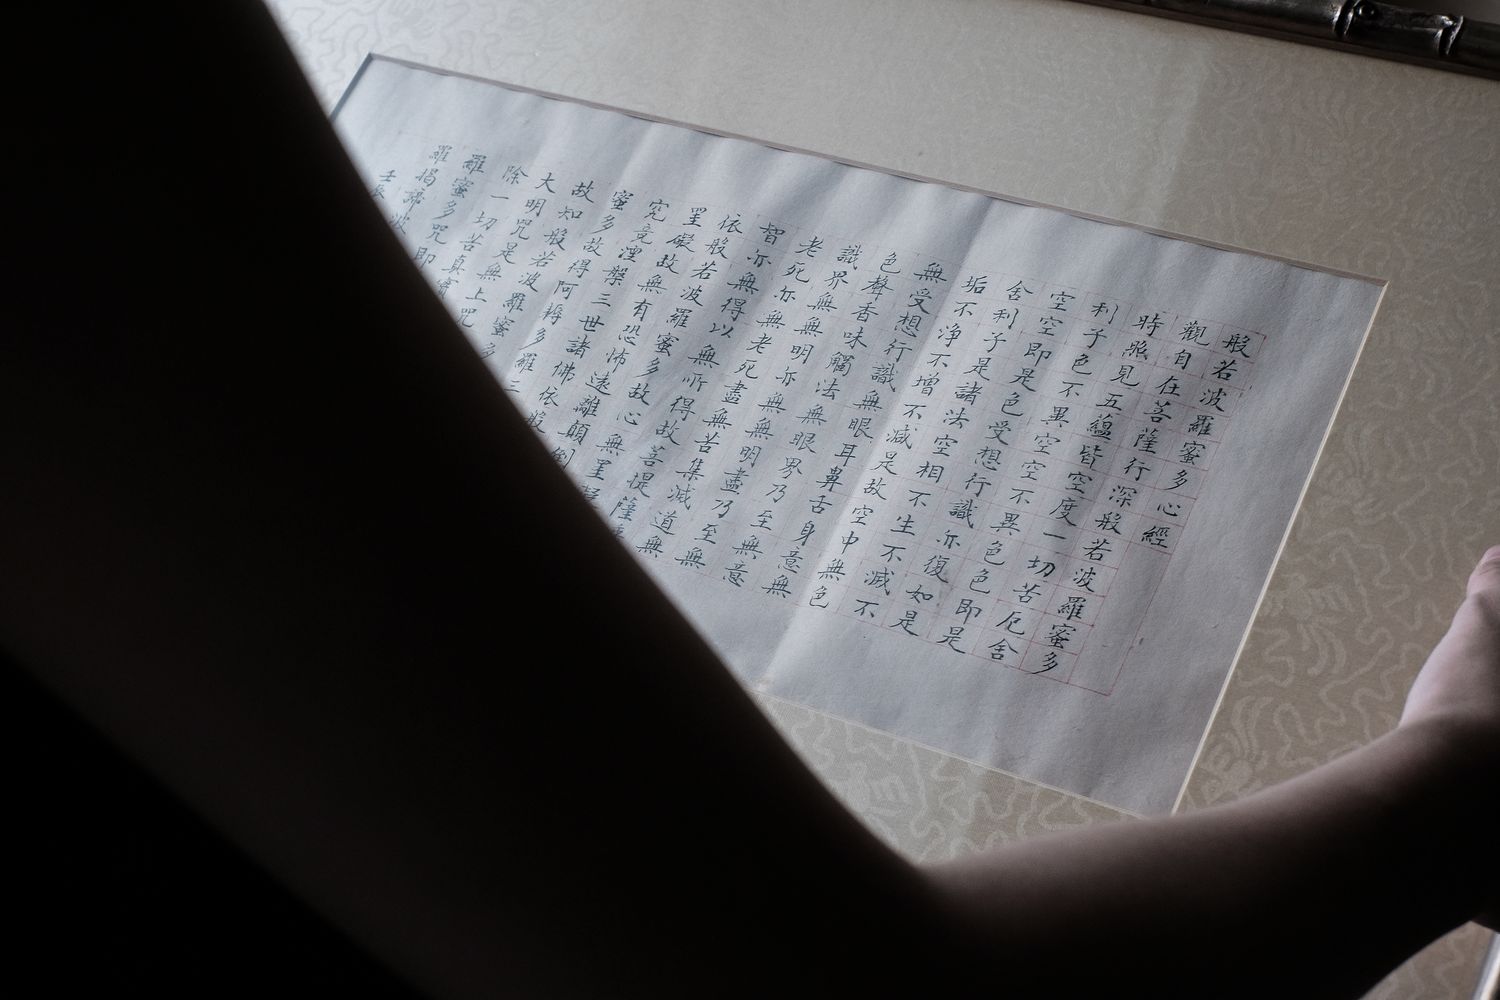 般若波羅蜜多心經
觀自在菩薩行深般若波羅蜜多
時照見五蘊皆空度一切苦厄舍
利子色不異空空不異色色即是
空空即是色受想行識亦復如是
舍利子是諸法空相不生不滅不
垢不淨不增不減是故空中無色
無受想行識無眼耳鼻舌身意無
色聲香味觸法無眼界乃至無意
識界無無明亦無無明盡乃至無
老死亦無老死盡無苦集滅道無
智亦無得以無所得故菩提薩
依般若波羅蜜多故心無罣
罣礙故無有恐怖遠離顛倒
究竟涅槃三世諸佛依般
蜜多故得阿耨多羅三
故知般若波羅蜜多
大明咒是無上咒
除一切苦真實
羅蜜多咒即
羅揭諦波
壬辰